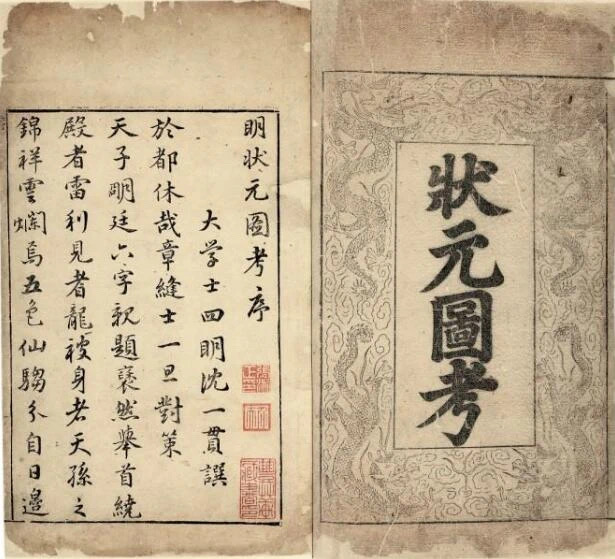 狀元圖考
明狀元圖考序
大学士四明沈一貫譔
於都休哉章縫士一旦對策
天子朙廷六字親題襃然舉首繞
殿者雷利見者龍被身者天孫之
錦祥雲爛焉五色仙騶分自日邊